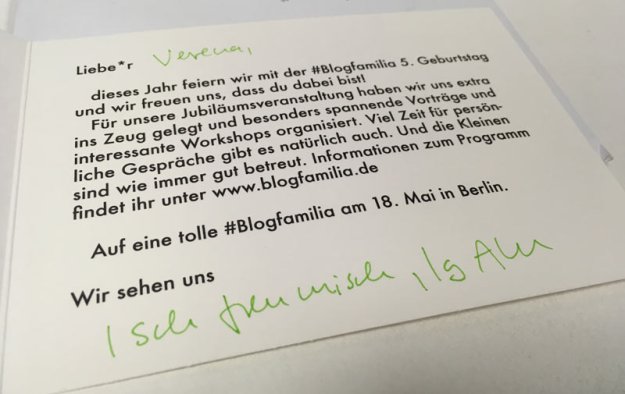 Liebe*r Verena,
dieses Jahr feiern wir mit der #Blogfamilia 5. Geburtstag
und wir freuen uns, dass du dabei bist!
Für unsere Jubiläumsveranstaltung haben wir uns extra
ins Zeug gelegt und besonders spannende Vorträge und
interessante Workshops organisiert. Viel Zeit für persön-
liche Gespräche gibt es natürlich auch. Und die Kleinen
sind wie immer gut betreut. Informationen zum Programm
findet ihr unter www.blogfamilia.de
Auf eine tolle #Blogfamilia am 18. Mai in Berlin.
Wir sehen uns
Isch freu misch, lg